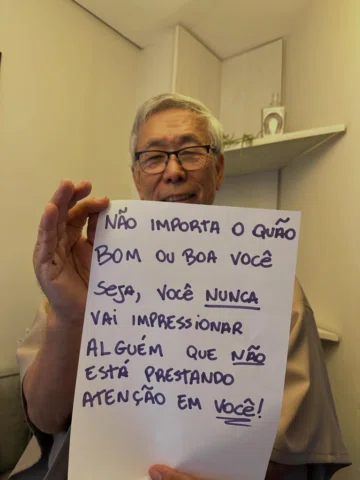 NÃO IMPORTA O QUÃO
BOM OU BOA VOCÊ
SEJA, VOCÊ NUNCA
VAI IMPRESSIONAR
ALGUÉM QUE NÃO
ESTÁ PRESTANDO
ATENÇÃO EM VOCÊ!